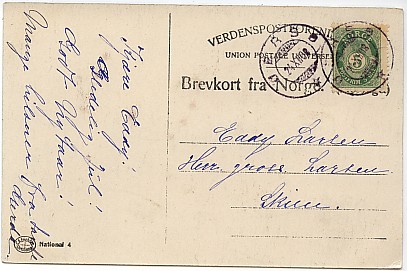 VERDENSPOSTFORENIN
UNION POSTALE UNIVERSEL
Brevkort fra Norge
NORGE
5
Kjære Eddy!
Glædelig Jul!
Godt Nytaar!
Mange hilsner fra
Eddy Larsen
Herr gross. Larsen
Skien
National 4